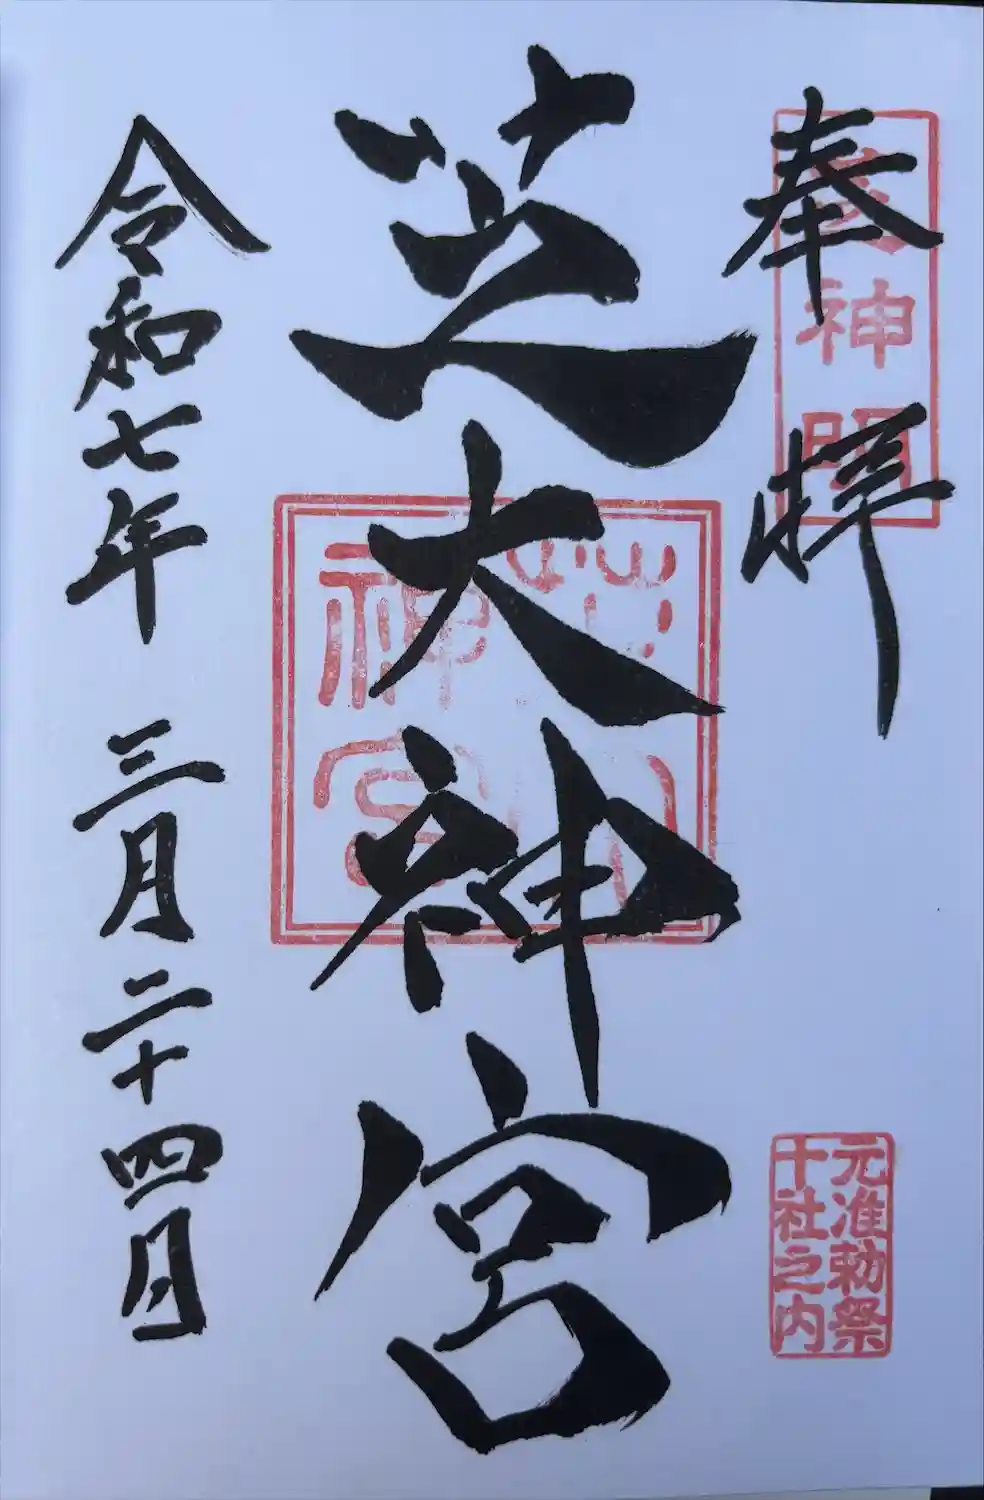 奉拝
芝神明
元准勅祭
十社之内
芝大神宮
芝大
神宮
令和七年 三月二十四日